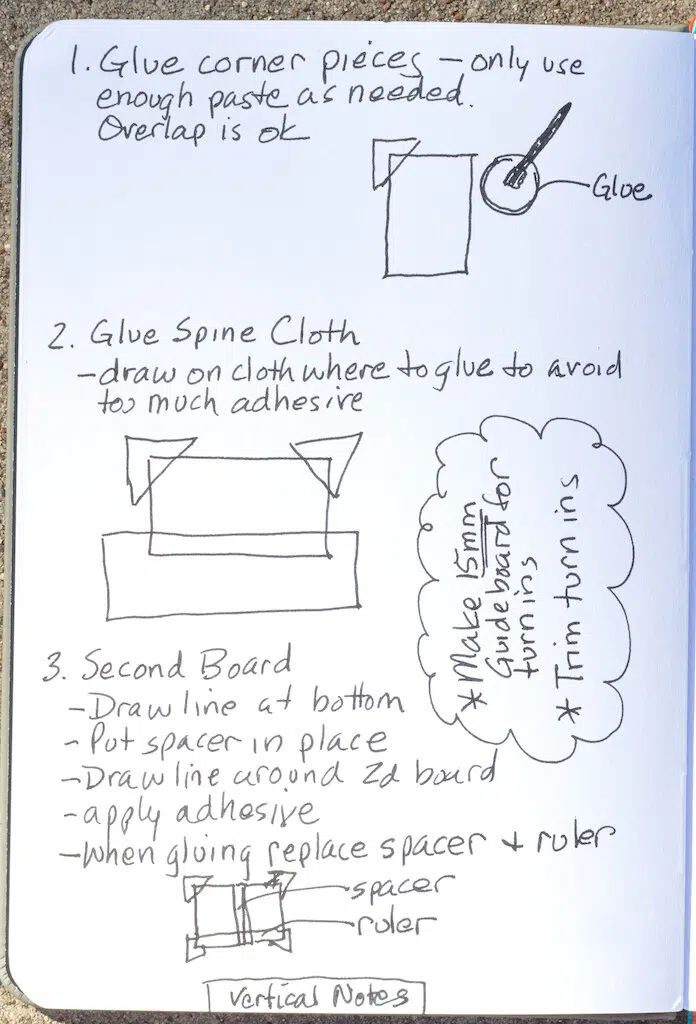 1. Glue corner pieces – only use
enough paste as needed.
Overlap is ok
Glue
2. Glue Spine Cloth
- draw on cloth where to glue to avoid
too much adhesive
* Make 15mm
Guide board for
turn ins
* Trim turn ins
3. Second Board
- Draw line at bottom
- Put spacer in place
- Draw line around 2d board
- apply adhesive
- When gluing replace spacer + ruler
spacer
ruler
Vertical Notes